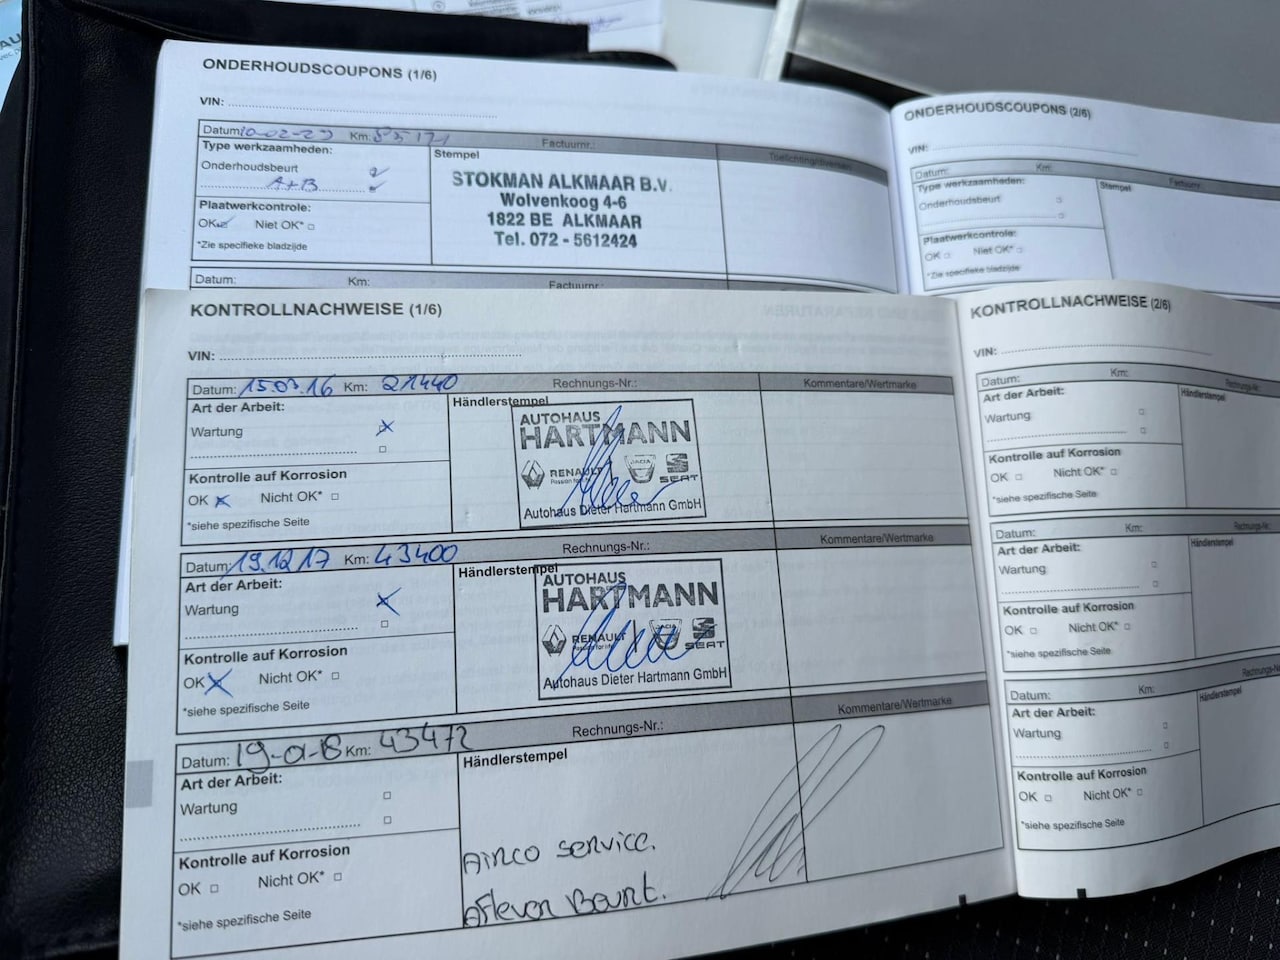 ONDERHOUDSCOUPONS (1/6)
VIN:
Datum: 10-02-23 Km: 85171 Factuurnr.: Toelichting/tijdstempel
Type werkzaamheden: Stempel
Onderhoudsbeurt
A+B
Plaatwerkcontrole:
OK Niet OK*
*Zie specifieke bladzijde
STOKMAN ALKMAAR B.V.
Wolvenkoog 4-6
1822 BE ALKMAAR
Tel. 072 - 5612424
Datum: Km: Factuurnr.:
ONDERHOUDSCOUPONS (2/6)
VIN:
Datum: Km: Factuurnr.:
Type werkzaamheden: Stempel
Onderhoudsbeurt
Plaatwerkcontrole:
OK Niet OK*
*Zie specifieke bladzijde
KONTROLLNACHWEISE (1/6)
VIN:
Datum: 15.03.16 Km: 21440 Rechnungs-Nr.: Kommentare/Wertmarke
Art der Arbeit: Händlerstempel
Wartung
Kontrolle auf Korrosion
OK Nicht OK*
*siehe spezifische Seite
AUTOHAUS
HARTMANN
RENAULT DACIA SEAT
Passion for life
Autohaus Dieter Hartmann GmbH
Datum: 19.12.17 Km: 43400 Rechnungs-Nr.: Kommentare/Wertmarke
Art der Arbeit: Händlerstempel
Wartung
Kontrolle auf Korrosion
OK Nicht OK*
*siehe spezifische Seite
AUTOHAUS
HARTMANN
RENAULT SEAT
Autohaus Dieter Hartmann GmbH
Datum: 19-01-18 Km: 43472 Rechnungs-Nr.: Kommentare/Wertmarke
Art der Arbeit: Händlerstempel
Wartung
Kontrolle auf Korrosion
OK Nicht OK*
*siehe spezifische Seite
Airco service.
Aflever Beurt.
KONTROLLNACHWEISE (2/6)
VIN:
Datum: Km: Rechnungs-Nr.:
Art der Arbeit: Händlerstempel
Wartung
Kontrolle auf Korrosion
OK Nicht OK*
*siehe spezifische Seite
Datum: Km: Rechnungs-Nr.:
Art der Arbeit: Händlerstempel
Wartung
Kontrolle auf Korrosion
OK Nicht OK*
*siehe spezifische Seite
Datum: Km: Rechnungs-Nr.:
Art der Arbeit: Händlerstempel
Wartung
Kontrolle auf Korrosion
OK Nicht OK*
*siehe spezifische Seite